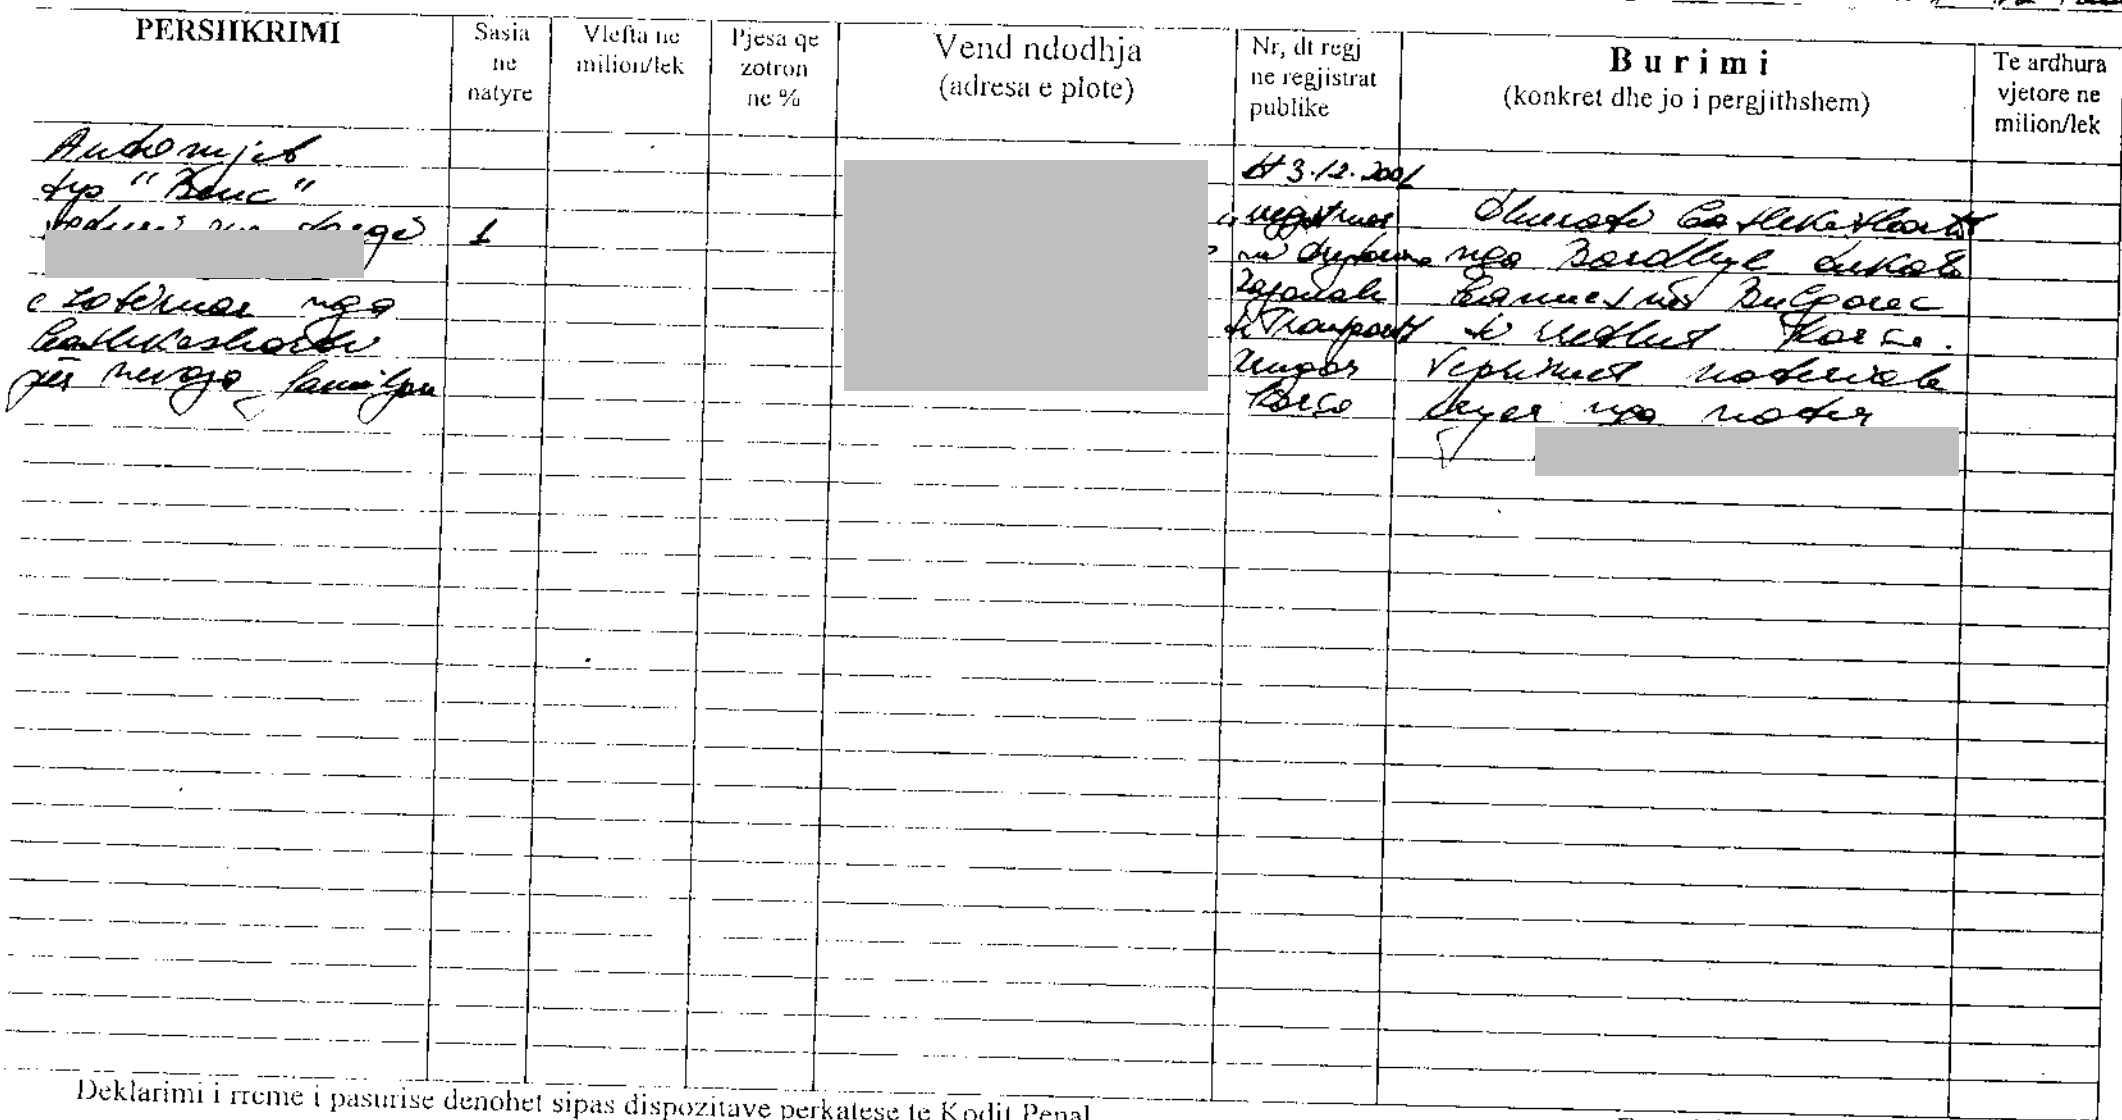 PERSHKRIMI
Sasia
ne
natyre
Vlefta ne
milion/lek
Pjesa qe
zotron
ne %
Vend ndodhja
(adresa e plote)
Nr, dt regj
ne regjistrat
publike
Burimi
(konkret dhe jo i pergjithshem)
Te ardhura
vjetore ne
milion/lek
Automjet
tip "Benc"
me targë
1
e zotëruar nga
bashkëshorti
për nevoja familjare
dt 3.12.2001
regjistruar
në drejtorine
rajonale
të Transportit
rrugor
Korçë
Dhuratë bashkëshortit
nga Bardhyl
Bulgarec
të rrethit Korçë.
Veprimet noteriale
kryer nga noter
Deklarimi i rreme i pasurise denohet sipas dispozitave perkatese te Kodit Penal